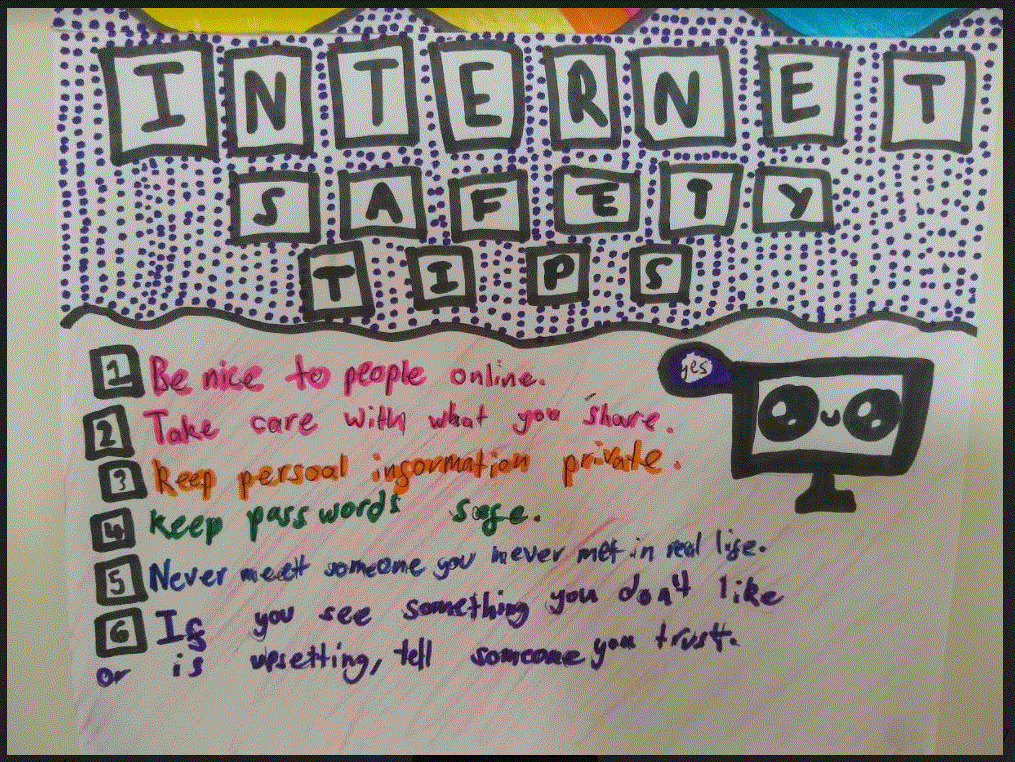 INTERNET
SAFETY
TIPS
1 Be nice to people online.
yes
2 Take care with what you share.
3 Keep persoal information private.
4 keep passwords safe.
5 Never meet someone you never met in real life.
6 If you see something you don't like
or is upsetting, tell someone you trust.